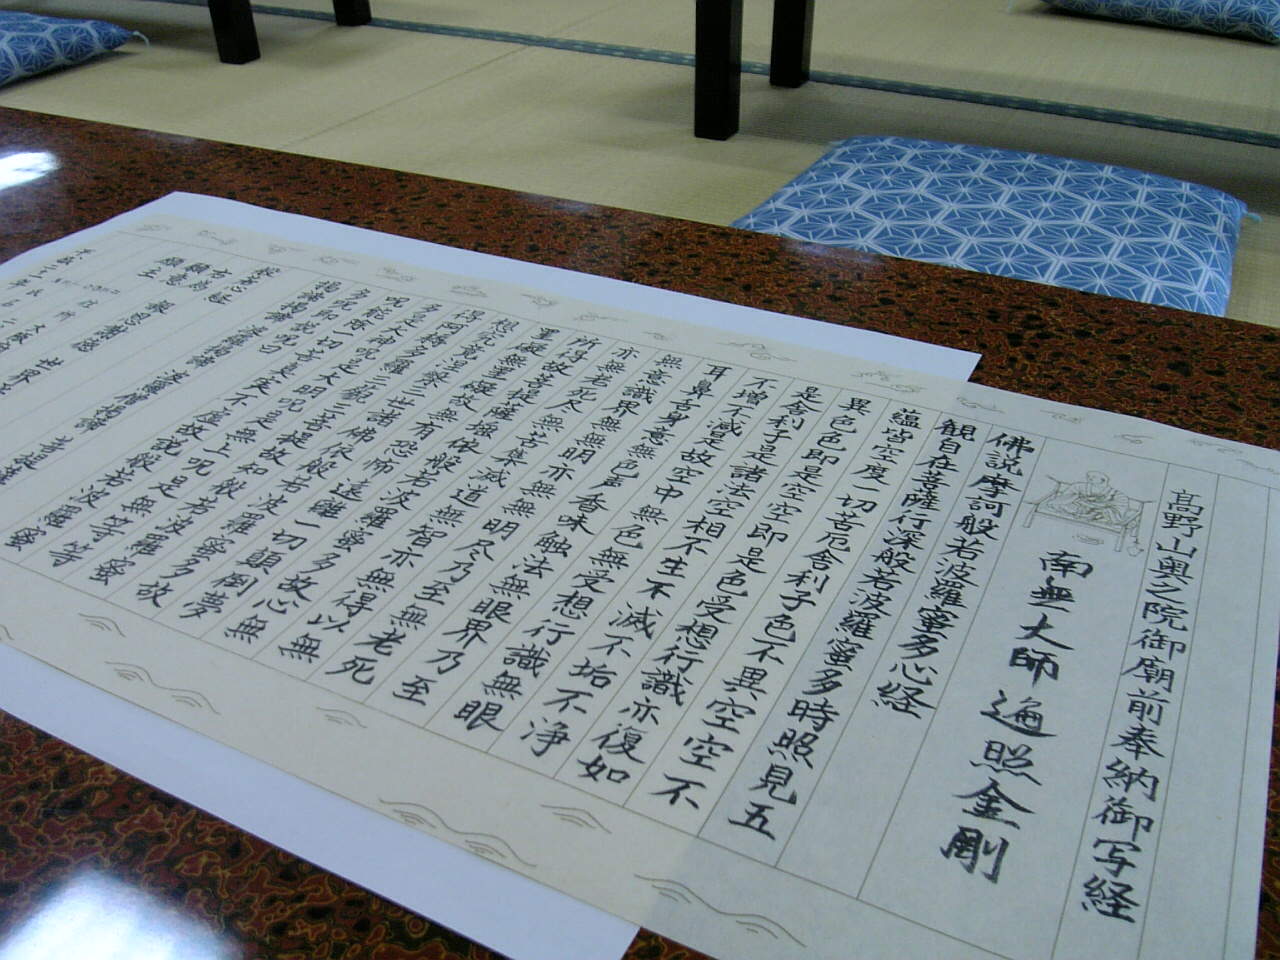 髙野山奥之院御廟前奉納御写経
南無大師遍照金剛
佛説摩訶般若波羅蜜多心経
観自在菩薩行深般若波羅蜜多時照見五
蘊皆空度一切苦厄舎利子色不異空空不
異色色即是空空即是色受想行識亦復如
是舎利子是諸法空相不生不滅不垢不浄
不増不減是故空中無色無受想行識無眼
耳鼻舌身意無色声香味触法無眼界乃至
無意識界無無明亦無無明尽乃至無老死
亦無老死尽無苦集滅道無智亦無得以無
所得故菩提薩埵依般若波羅蜜多故心無
罣礙無罣礙故無有恐怖遠離一切顛倒夢
想究竟涅槃三世諸佛依般若波羅蜜多故
得阿耨多羅三藐三菩提故知般若波羅蜜
多是大神呪是大明呪是無上呪是無等等
呪能除一切苦真実不虚故説般若波羅蜜
多呪即説呪曰
羯諦羯諦 波羅羯諦 波羅僧羯諦 菩提薩
般若心経